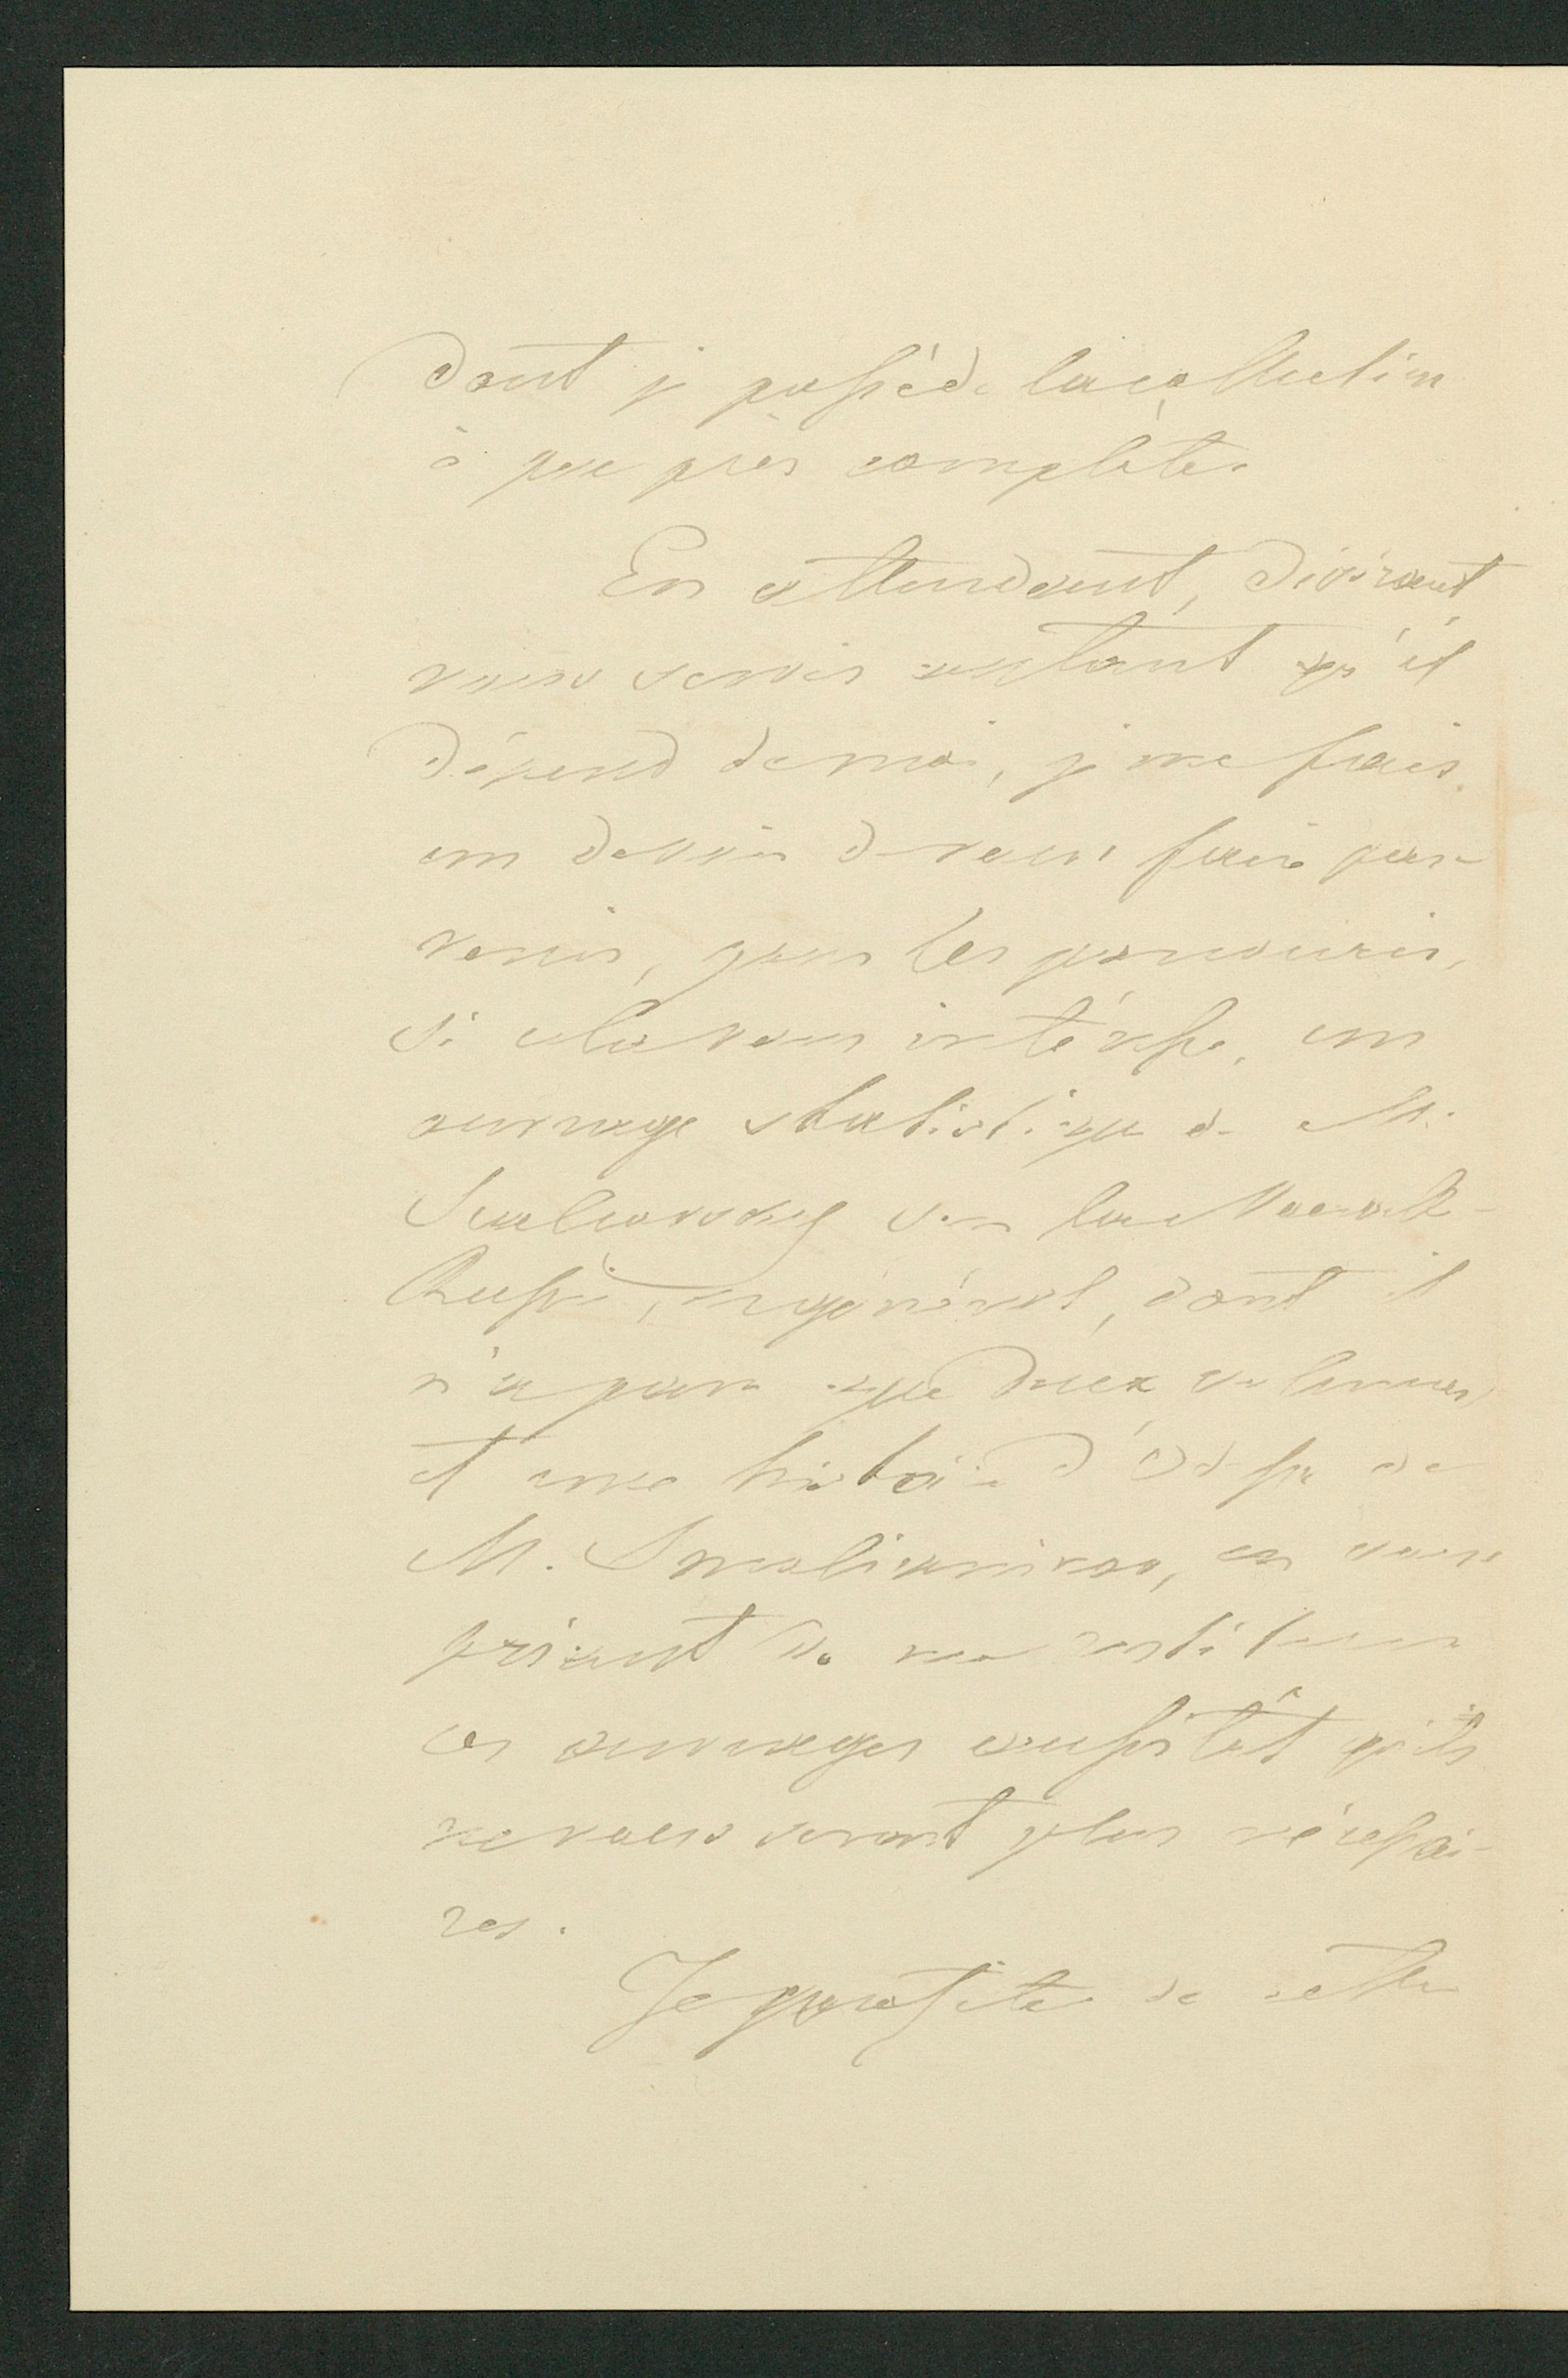 dont je possède la collection
à peu près complète.
En attendant, désirant
vous servir autant qu'il
dépend de moi, je me fais
un devoir de vous faire par-
venir, pour les parcourir,
si cela vous intéresse, un
ouvrage statistique de M.
Skalkowsky sur la Nouvelle-
Russie, en général, dont il
n'a paru que deux volumes,
et une histoire d'Odessa de
M. Smolianinow, en vous
priant de me restituer
ces ouvrages aussitôt qu'ils
ne vous seront plus nécessai-
res.
Je profite de cette